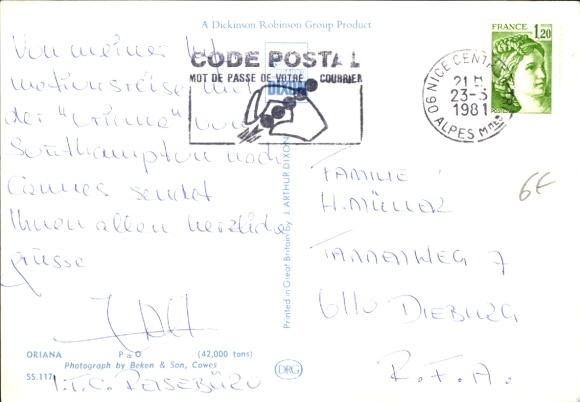 A Dickinson Robinson Group Product
Von meiner
motionsreise mit
der "Oriana" von
Southampton nach
Cannes sendet
Ihnen allen herzliche
Grüsse
ORIANA P & O (42,000 tons)
Photograph by Beken & Son, Cowes
SS.117
I.T.C. REISEBÜRO
CODE POSTAL
MOT DE PASSE DE VOTRE COURRIER
DIXON
Printed in Great Britain by J. ARTHUR DIXON
DRG
FRANCE 1,20
06 NICE CENTRE
21 H
23-5
1981
ALPES Mmes
FAMILIE
H. MÜLLER
TANNENWEG 7
6110 DIEBURG
R.F.A.
6€